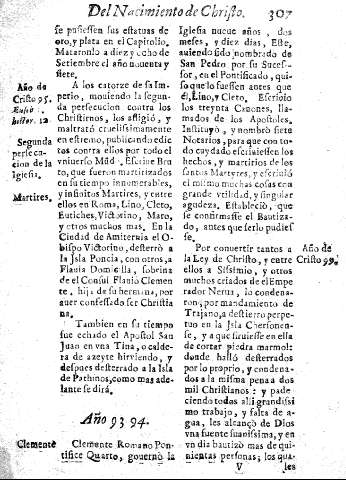 Del Nacimiento de Christo. 307
se pusiessen sus estatuas de
oro, y plata en el Capitolio.
Mataronlo a diez y ocho de
Setiembre el año noventa y
siete.
Año de
Cristo 95.
Euseb:
histor. 12
A los catorze de sa Im-
perio, moviendo la segun-
da persecucion contra los
Christirnos, los afligió, y
maltrató cruelissimamente
Segunda
persecu-
cion de la
Iglesia.
en estremo, publicando edic
tos contra ellos por todo el
vniuerso
que fueron martirizados
en su tiempo innumerables,
Martires.
y infinitos Martires, y entre
ellos en Roma, Lino, Cleto,
Eutiches, Victorino, Maro,
y otros muchos mas. En la
Ciudad de Amiternia el O-
bispo Victorino, desterró a
la Isla Poncia, con otros, a
Flauia Domicilla, sobrina
de el Consul Flauio Clemen
te. hija de su hermana, por
auer confessado ser Christia
na.
Tambien en su tiempo
fue echado el Apostol San
Juan en vna Tina, o calde-
ra de azeyte hirviendo, y
despues desterrado a la Isla
de Pathmos, como mas ade-
lante se dirá.
Año 93 94.
Clemente
Clemente Romano Pon-
tifice Quarto, governò la
Iglesia nueue años, dos
meses, y diez dias, Este,
auiendo sido nombrado de
San Pedro por su Suces-
sor, en el Pontificado, qui-
so que lo fuessen antes que
él, Lino, y Cleto, Escriuió
los treynta Canones, lla-
mados de los Apostoles.
Instituyó, y nombró siete
Notarios, para que con to-
do cuydado escriuiessen los
hechos, y martirios de los
santos Martyres, y escriuió
el mismo muchas cosas con
grande vtilidad, y singular
agudeza. Estableció, que
se confirmasse el Bautiza-
do, antes que serlo pudies
se.
Por convertir tantos a
la Ley de Christo, y entre
Año de
Cristo 99.
ellos a Sisinio, y otros
muchos criados de el Empe
rador Nerua, lo condena-
ron, por mandamiento de
Trajano, a destierro perpe-
tuo en la Isla Chersonen-
se, y a que siruiesse en ella
de cortar piedra marmol:
donde halló desterrados
por lo proprio, y condena-
dos a la misma pena a dos
mil Christianos: y pade-
ciendo todos alli grandissi
mo trabajo, y falta de a-
gua, les alcançò de Dios
vna fuente suauissima, y en
vn dia bautizò mas de qui-
nientas personas; los qua-
V les